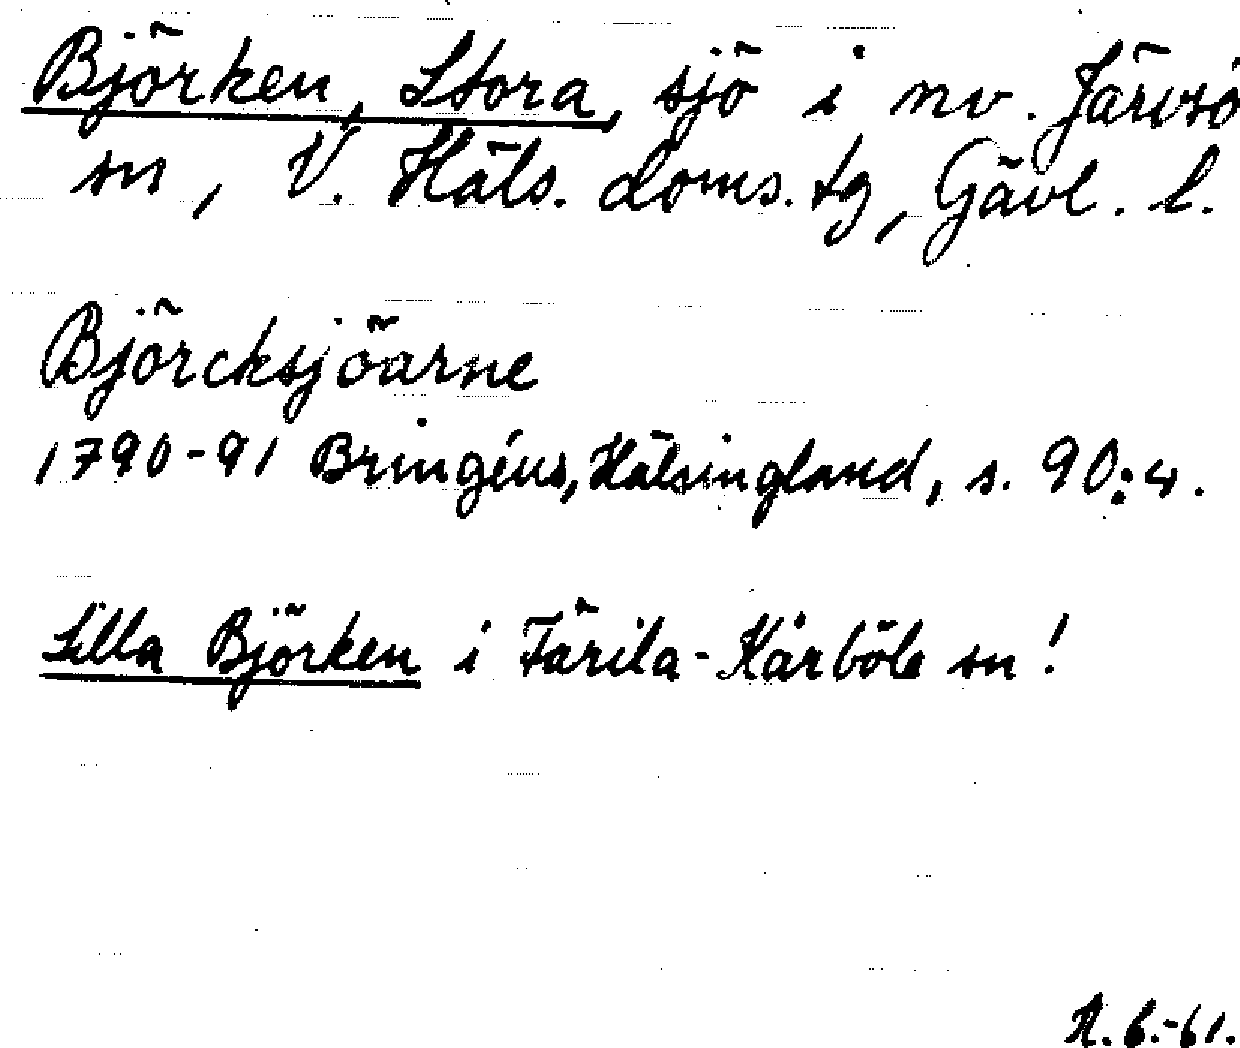 Björken, Stora, sjö i nv. Järvsö
sn, V. Häls. doms. tg, Gävl. l.
Björcksjöarne
1790-91 Bringéus, Hälsingland, s. 90:4.
Lilla Björken i Färila-Kårböle sn!
H. 6.-61.